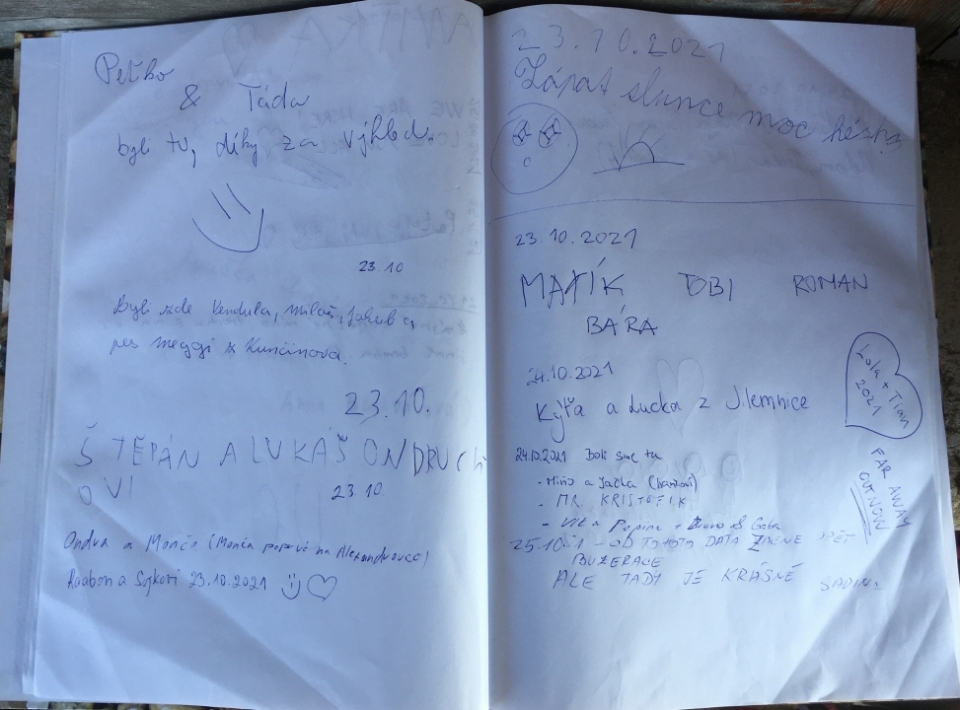 Peťko
& Táda
byli tu, díky za výhled.
23.10
Byli zde Vendula, Miloš, Jakub a
pes Meggi z Kunčinova.
23.10.
ŠTĚPÁN A LUKÁŠ ONDRUCH
OVI
23.10.
Ondra a Monča (Monča poprvé na Alexandrovce)
23.10.2021
23.10.2021
Západ slunce moc hezký
23.10.2021
MATÍK TOBI ROMAN
BÁRA
24.10.2021
Kýťa a Lucka z Jilemnice
Lola + Tian
2021
FAR AWAY
OUT NOW
24.10.2021 Boli sme tu
- Miňo a Jačka
- MR. KRISTOFIK
25.10. - OD TOHOTO DATA ZDENE OPĚT
BUZERACE
ALE TADY JE KRÁSNĚ